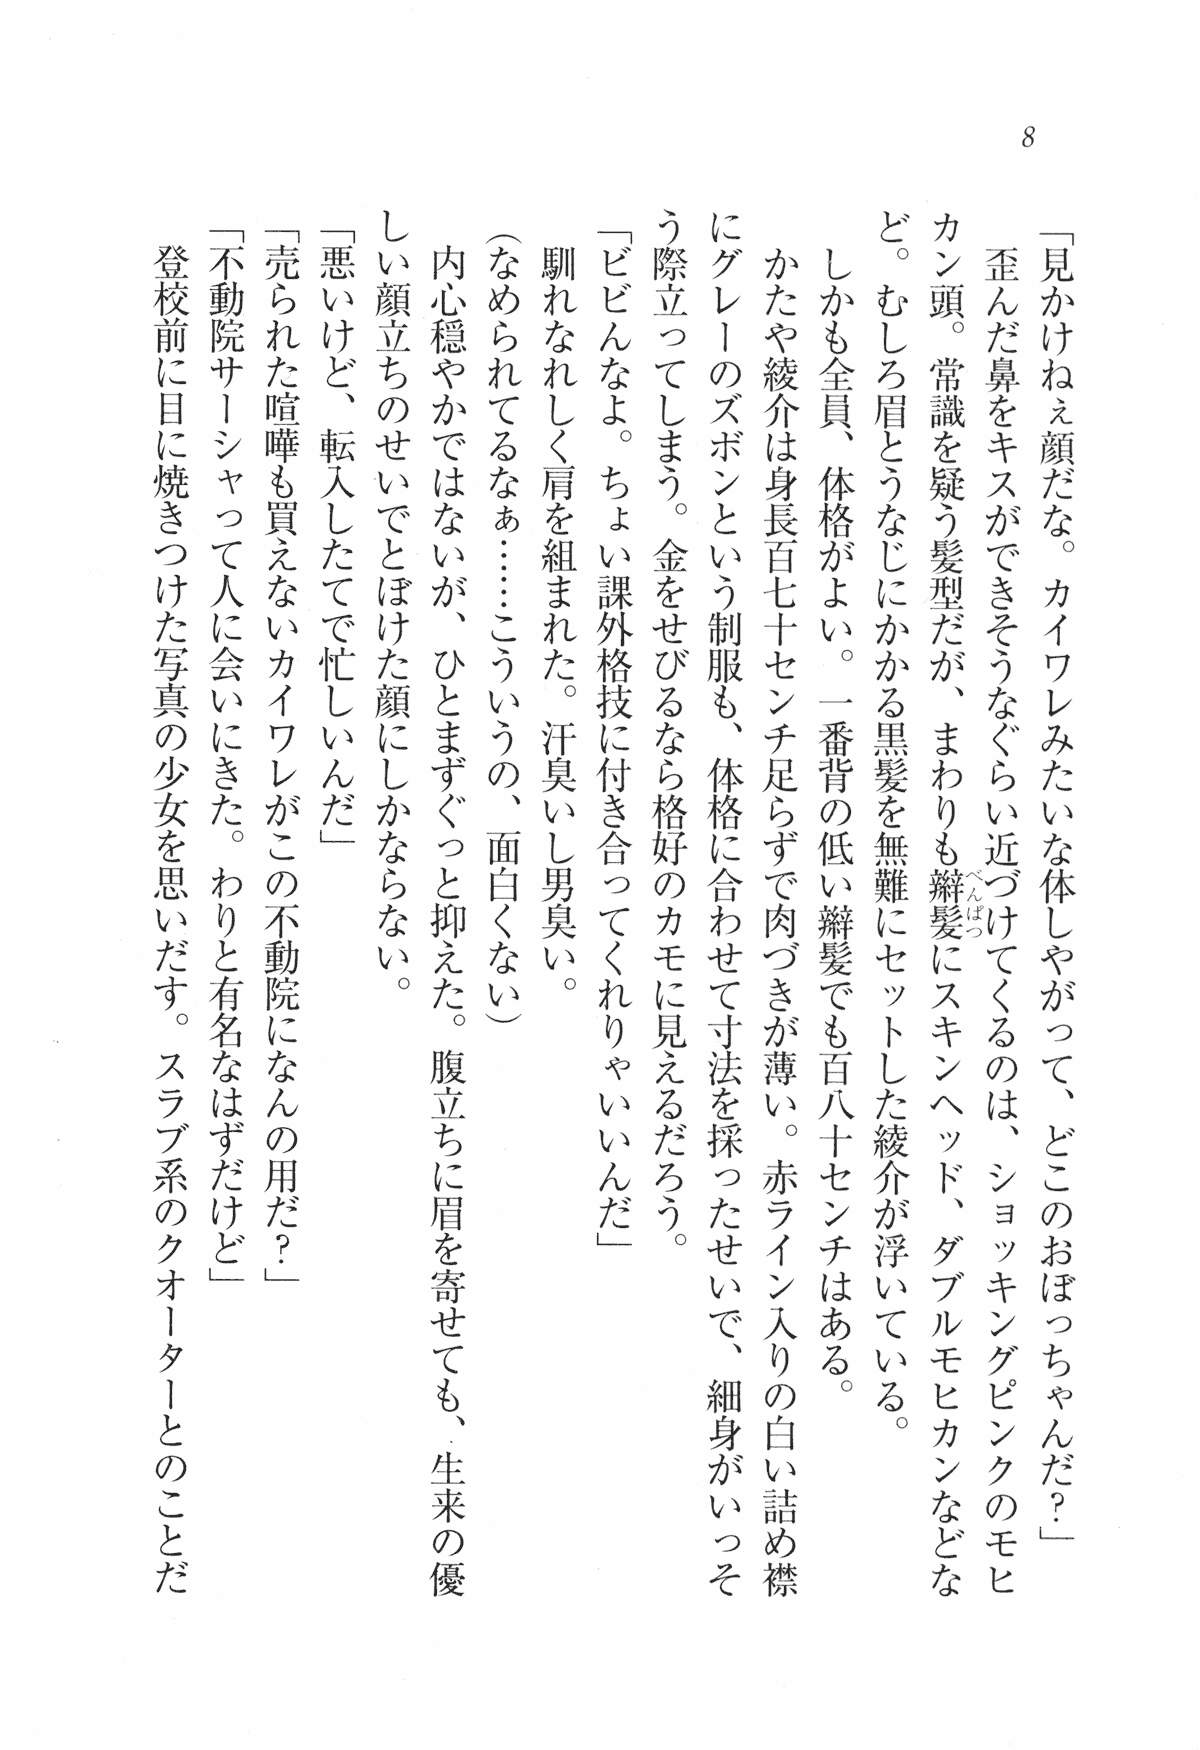 8
「見かけねぇ顔だな。カイワレみたいな体しやがって、どこのおぼっちゃんだ？」
歪んだ鼻をキスができそうなぐらい近づけてくるのは、ショッキングピンクのモヒ
カン頭。常識を疑う髪型だが、まわりも辮髪にスキンヘッド、ダブルモヒカンなどな
べんぱつ
ど。むしろ眉とうなじにかかる黒髪を無難にセットした綾介が浮いている。
しかも全員、体格がよい。一番背の低い辮髪でも百八十センチはある。
かたや綾介は身長百七十センチ足らずで肉づきが薄い。赤ライン入りの白い詰め襟
にグレーのズボンという制服も、体格に合わせて寸法を採ったせいで、細身がいっそ
う際立ってしまう。金をせびるなら格好のカモに見えるだろう。
「ビビんなよ。ちょい課外格技に付き合ってくれりゃいいんだ」
馴れなれしく肩を組まれた。汗臭いし男臭い。
（なめられてるなぁ……こういうの、面白くない）
内心穏やかではないが、ひとまずぐっと抑えた。腹立ちに眉を寄せても、生来の優
しい顔立ちのせいでとぼけた顔にしかならない。
「悪いけど、転入したてで忙しいんだ」
「売られた喧嘩も買えないカイワレがこの不動院になんの用だ？」
「不動院サーシャって人に会いにきた。わりと有名なはずだけど」
登校前に目に焼きつけた写真の少女を思いだす。スラブ系のクオーターとのことだ